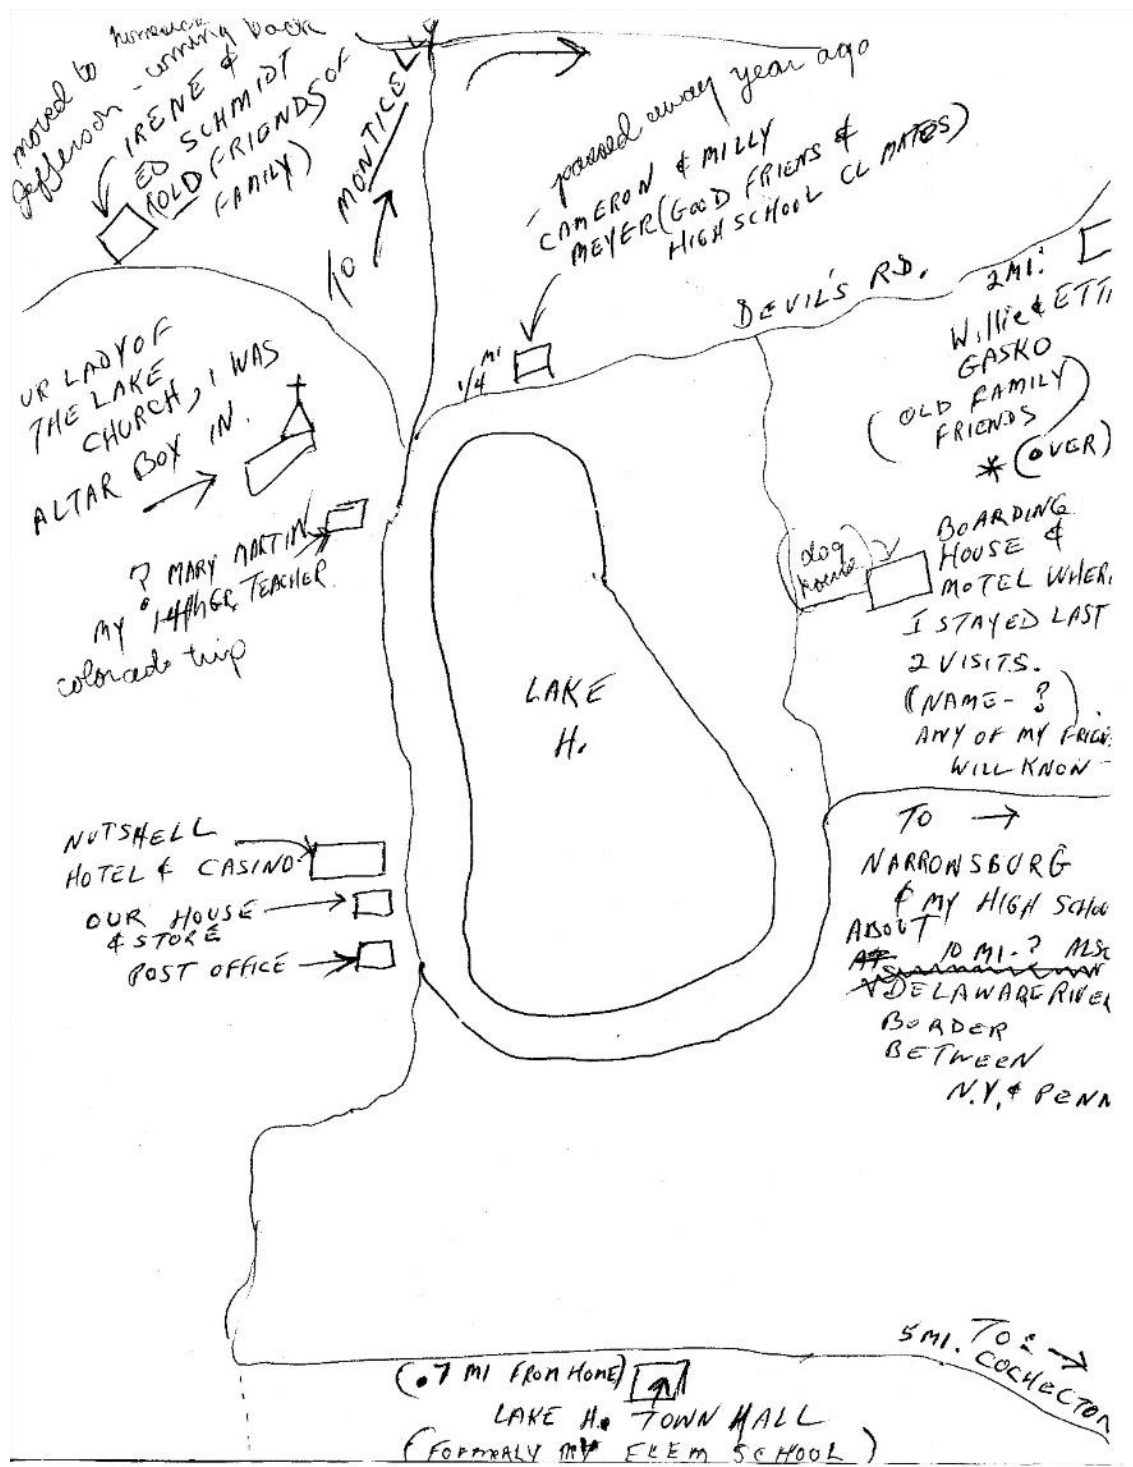 moved to
Jefferson - coming back
IRENE &
ED SCHMIDT
(OLD FRIENDS OF
FAMILY)
TO MONTICE
passed away year ago
CAMERON & MILLY
MEYER (GOOD FRIENS &
HIGH SCHOOL CL MATES)
DEVIL'S RD.
1/4 MI
2 MI.
Willie & ETT
GASKO
(OLD FAMILY
FRIENDS)
* (OVER)
UR LADY OF
THE LAKE
CHURCH, I WAS
ALTAR BOY IN.
? MARY MARTIN
MY TEACHER
colorado trip
log
house
BOARDING
HOUSE &
MOTEL WHER
I STAYED LAST
2 VISITS.
(NAME - ?).
ANY OF MY FRIEN
WILL KNOW -
LAKE
H.
NUTSHELL
HOTEL & CASINO
OUR HOUSE
& STORE
POST OFFICE
TO →
NARROWSBURG
& MY HIGH SCHOO
ABOUT
10 MI. ? ALSO
DELAWARE RIVER
BORDER
BETWEEN
N.Y. & PENN
5 MI. TO
COCHECTON
(.7 MI FROM HOME)
LAKE H. TOWN HALL
(FORMERALY MY ELEM SCHOOL)